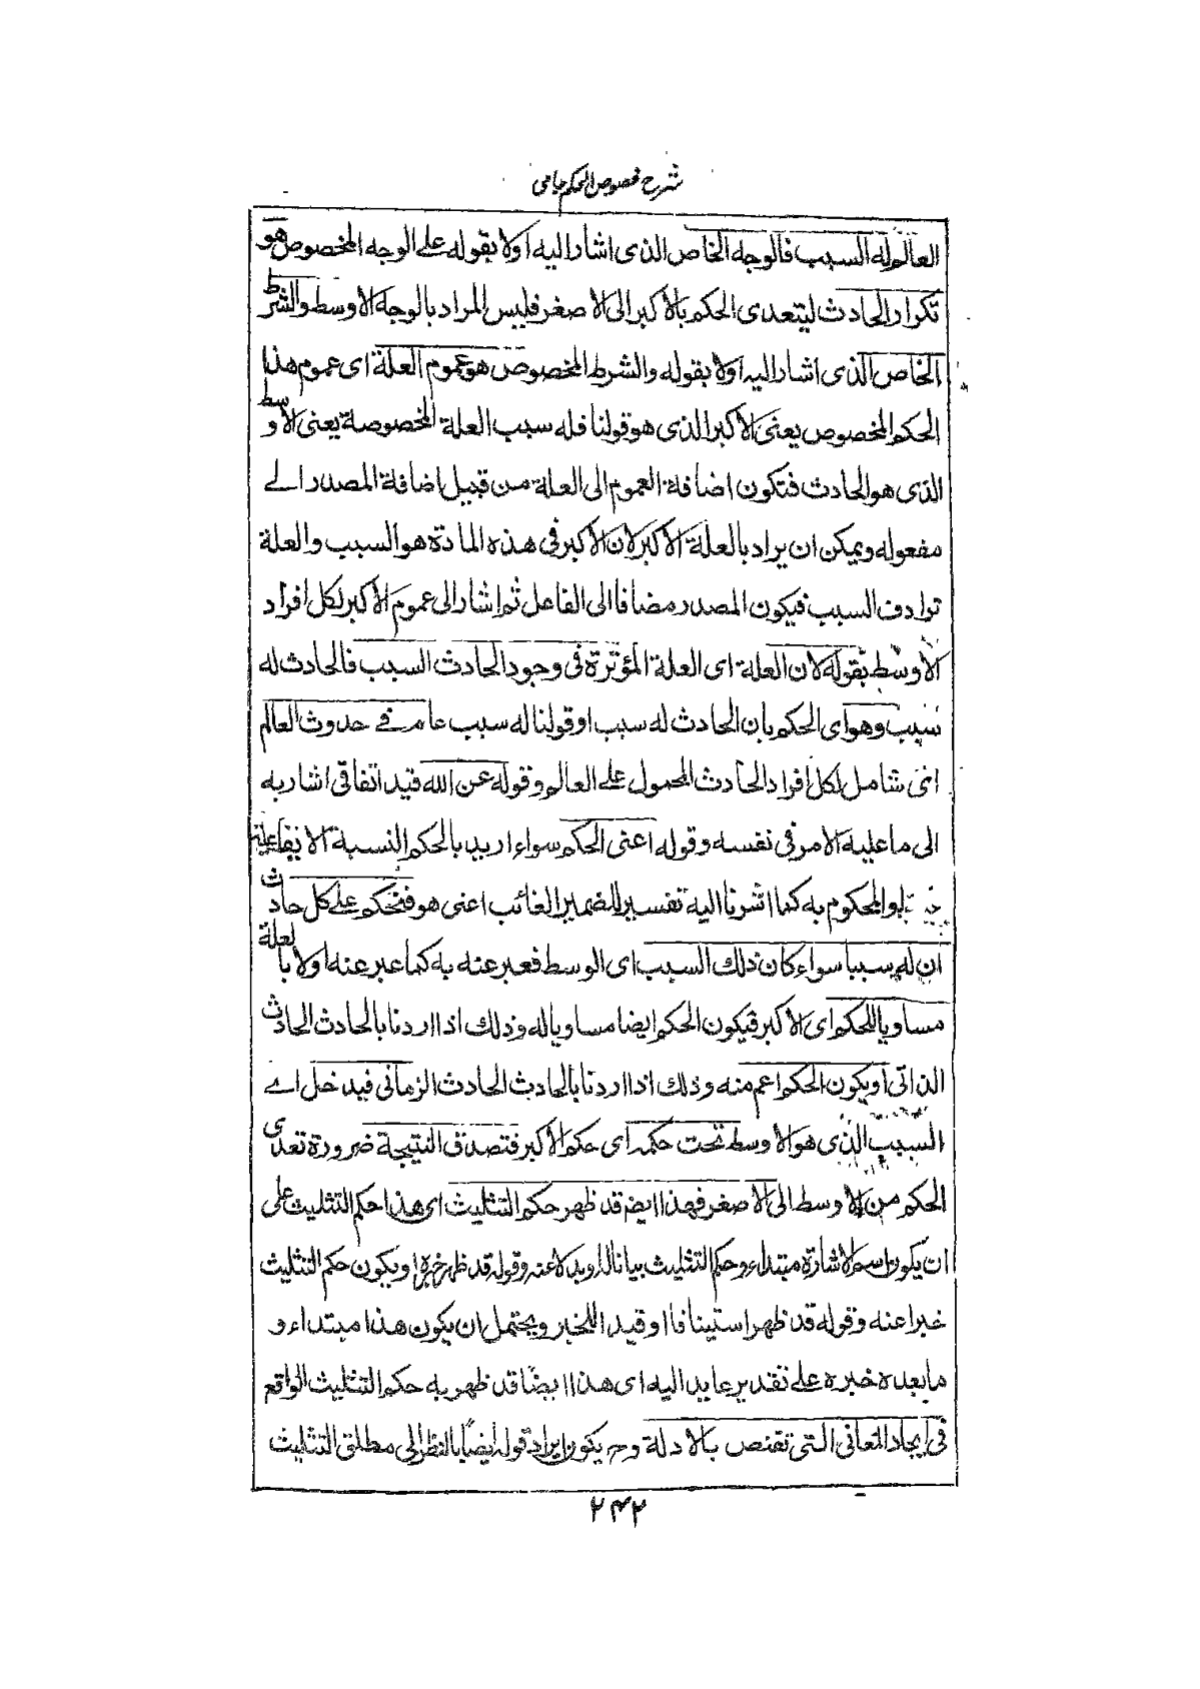 شرح فصوص الحكم جامى
العالم له السبب فالوجه الخاص الذى اشار اليه اولا بقوله على الوجه المخصوص هو
تكرار الحادث ليتعدى الحكم بالاكبر الى الاصغر فليس المراد بالوجه الاوسط والشرط
الخاص الذى اشار اليه اولا بقوله والشرط المخصوص هو عموم العلة اى عموم هذا
الحكم المخصوص يعنى الاكبر الذى هو قولنا فله سبب العلة المخصوصة يعنى الاوسط
الذى هو الحادث فتكون اضافة العموم الى العلة من قبيل اضافة المصدر الے
مفعوله ويمكن ان يراد بالعلة الاكبر لان الاكبر فى هذه المادة هو السبب والعلة
ترادف السبب فيكون المصدر مضافا الى الفاعل ثم اشار الى عموم الاكبر لكل افراد
الاوسط بقوله لان العلة اى العلة المؤثرة فى وجود الحادث السبب فالحادث له
سبب وهو اى الحكم بان الحادث له سبب او قولنا له سبب عام فے حدوث العالم
اى شامل لكل افراد الحادث المحمول على العالم وقوله عن الله قيد اتفاقى اشار به
الى ما عليه الامر فى نفسه وقوله اعنى الحكم سواء اريد بالحكم النسبة الا
والمحكوم به كما اشرنا اليه تفسير للضمير الغائب اعنى هو فتحكم على كل حادث
ان له سببا سواء كان ذلك السبب اى الوسط فعبر عنه به كما عبر عنه اولا بالعلة
مساويا للحكم اى الاكبر فيكون الحكم ايضا مساويا له وذلك اذا اردنا بالحادث الحادث
الذاتى او يكون الحكم اعم منه وذلك اذا اردنا بالحادث الحادث الزمانى فيدخل اے
السبب الذى هو الاوسط تحت حكمه اى حكم الاكبر فتصدق النتيجة ضرورة تعدى
الحكم من الاوسط الى الاصغر فهذا ايضا قد ظهر حكم التثليث اى هذا حكم التثليث على
ان يكون اسم الاشارة مبتداء وحكم التثليث بيانا له او بدلا عنه وقوله قد ظهر خبره او يكون حكم التثليث
خبرا عنه وقوله قد ظهر استينافا او قيدا للخبر ويحتمل ان يكون هذا مبتداء و
ما بعده خبره على تقدير عايد اليه اى هذا ايضا قد ظهر به حكم التثليث الواقع
فى ايجاد المعانى التى تقتنص بالادلة وح يكون ايراد قوله ايضا بالنظر الى مطلق التثليث
۲۴۲